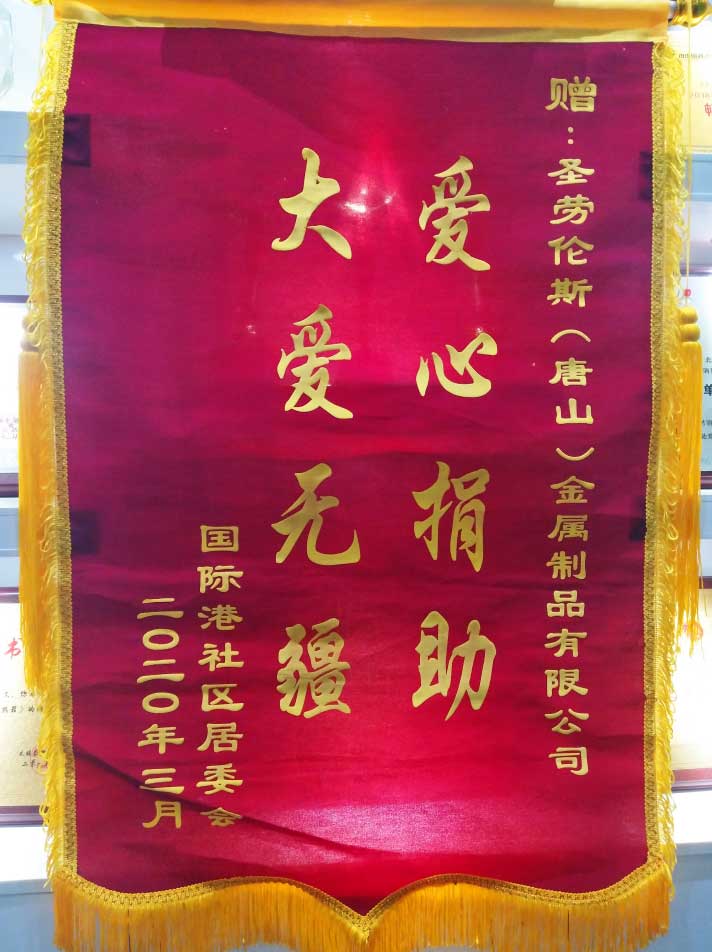 赠:圣劳伦斯(唐山)金属制品有限公司
爱心捐助
大爱无疆
国际港社区居委会
二〇二〇年三月